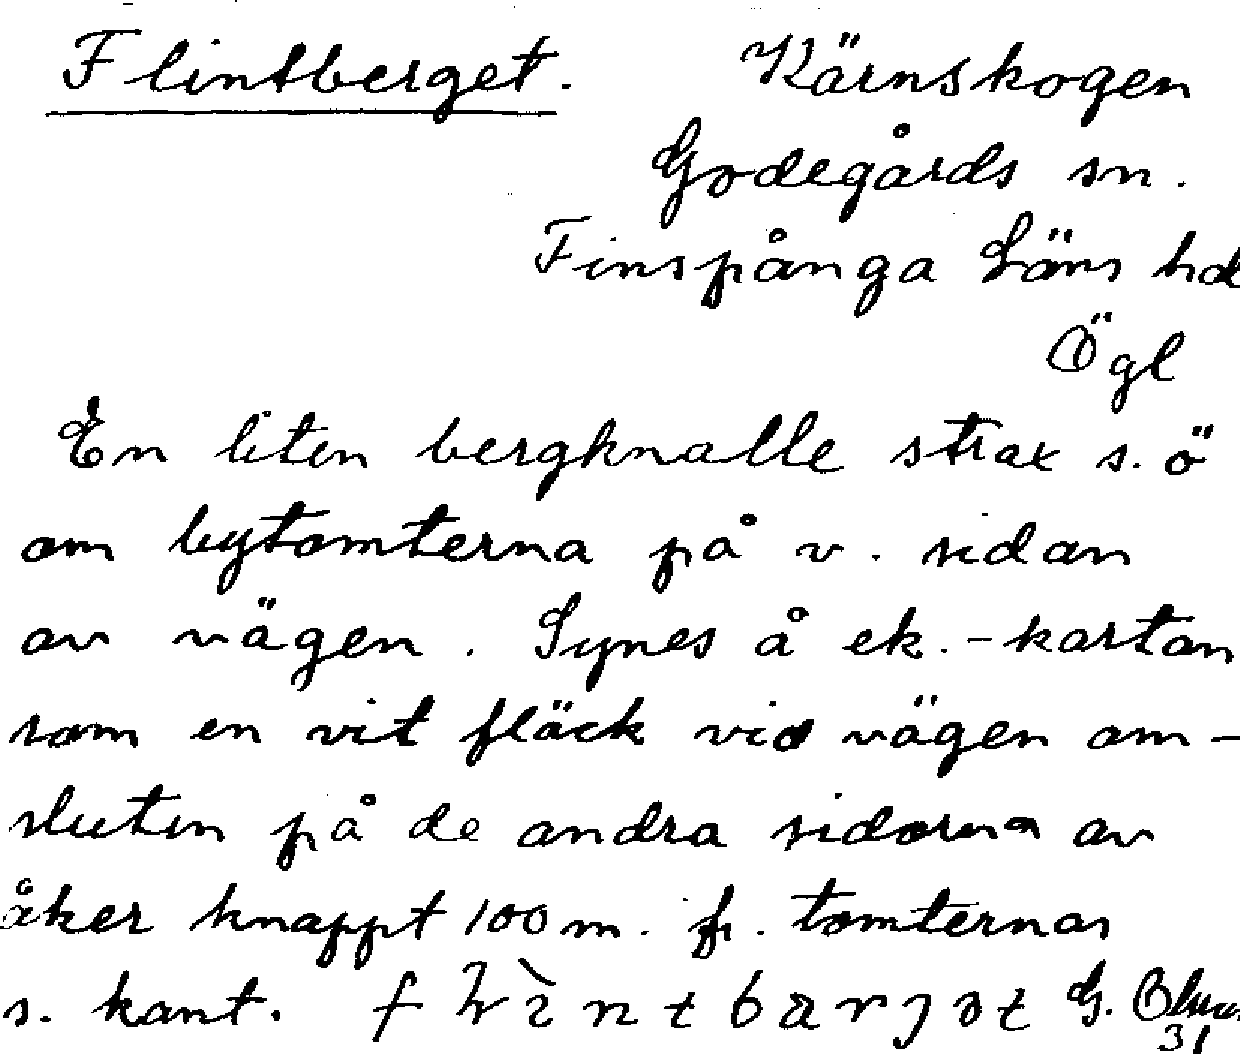 Flintberget. Kärnskogen
Godegårds sn.
Finspånga Läns hd
Ögl
En liten bergknalle strax s. ö
om bytomterna på v. sidan
av vägen. Synes å ek.-kartan
som en vit fläck vid vägen om-
sluten på de andra sidorna av
åker knappt 100 m. fr. tomternas
s. kant. G.
31